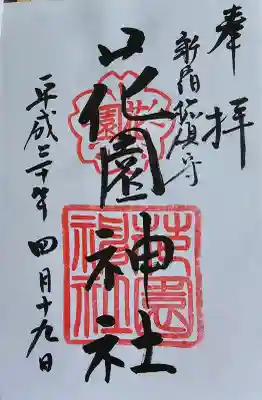 奉拝
新宿総鎮守
花園神社
平成三十年四月十九日
花園
花園神社